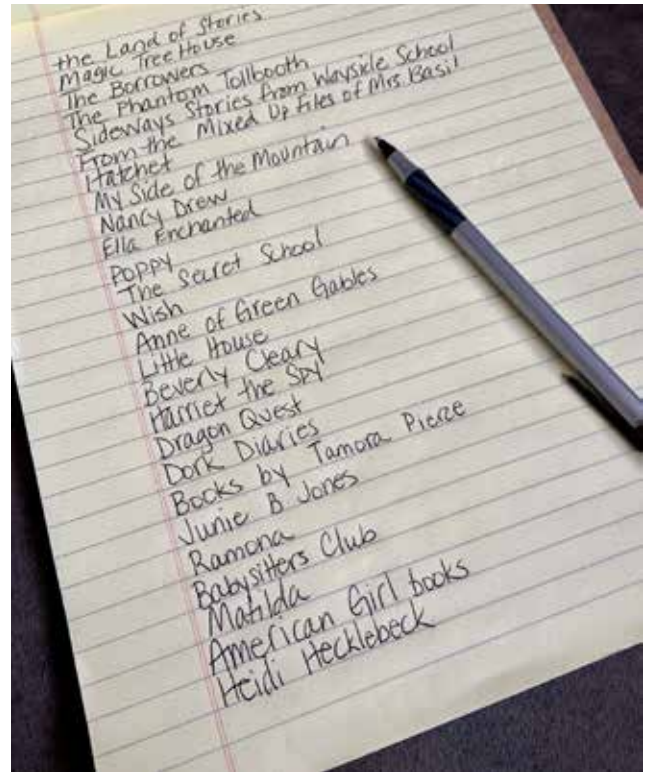 the Land of Stories
Magic Tree House
The Borrowers
The Phantom Tollbooth
Sideways Stories from Wayside School
From the Mixed Up Files of Mrs. Basil
Hatchet
My Side of the Mountain
Nancy Drew
Ella Enchanted
Poppy
The Secret School
Wish
Anne of Green Gables
Little House
Beverly Cleary
Harriet the Spy
Dragon Quest
Dork Diaries
Books by Tamora Pierce
Junie B Jones
Ramona
Babysitters Club
Matilda
American Girl books
Heidi Hecklebeck